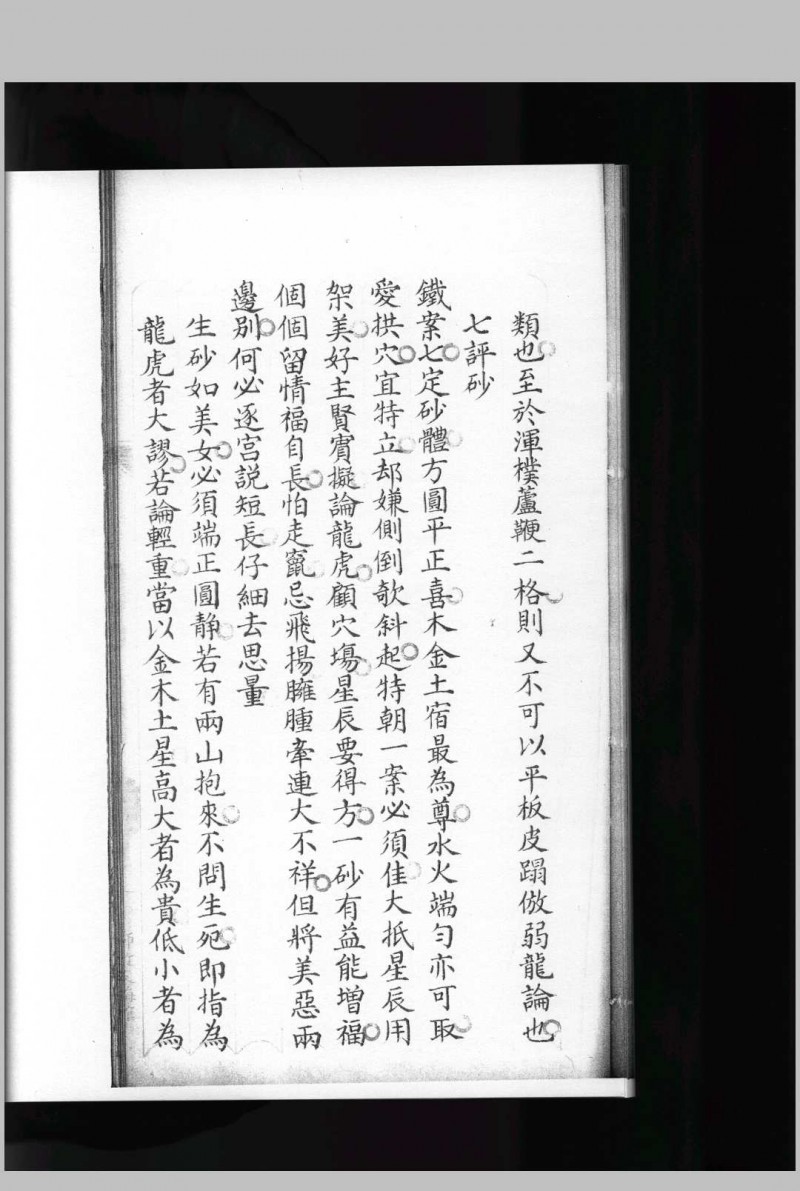 類也至於渾樸蘆鞭二格則又不可以平板皮蹋倣弱龍論也
七評砂
鐵案七定砂體方圓平正喜木金土宿最為尊水火端勻亦可取
愛拱穴宜特立却嫌側倒欹斜起特朝一案必須佳大抵星辰用
架美好主賢賓擬論龍虎顧穴塲星辰要得方一砂有益能增福
個個留情福自長怕走竄忌飛揚臃腫牽連大不祥但將美惡兩
邊別何必逐宮説短長仔細去思量
生砂如美女必須端正圓静若有兩山抱來不問生死即指為
龍虎者大謬若論輕重當以金木土星高大者為貴低小者為